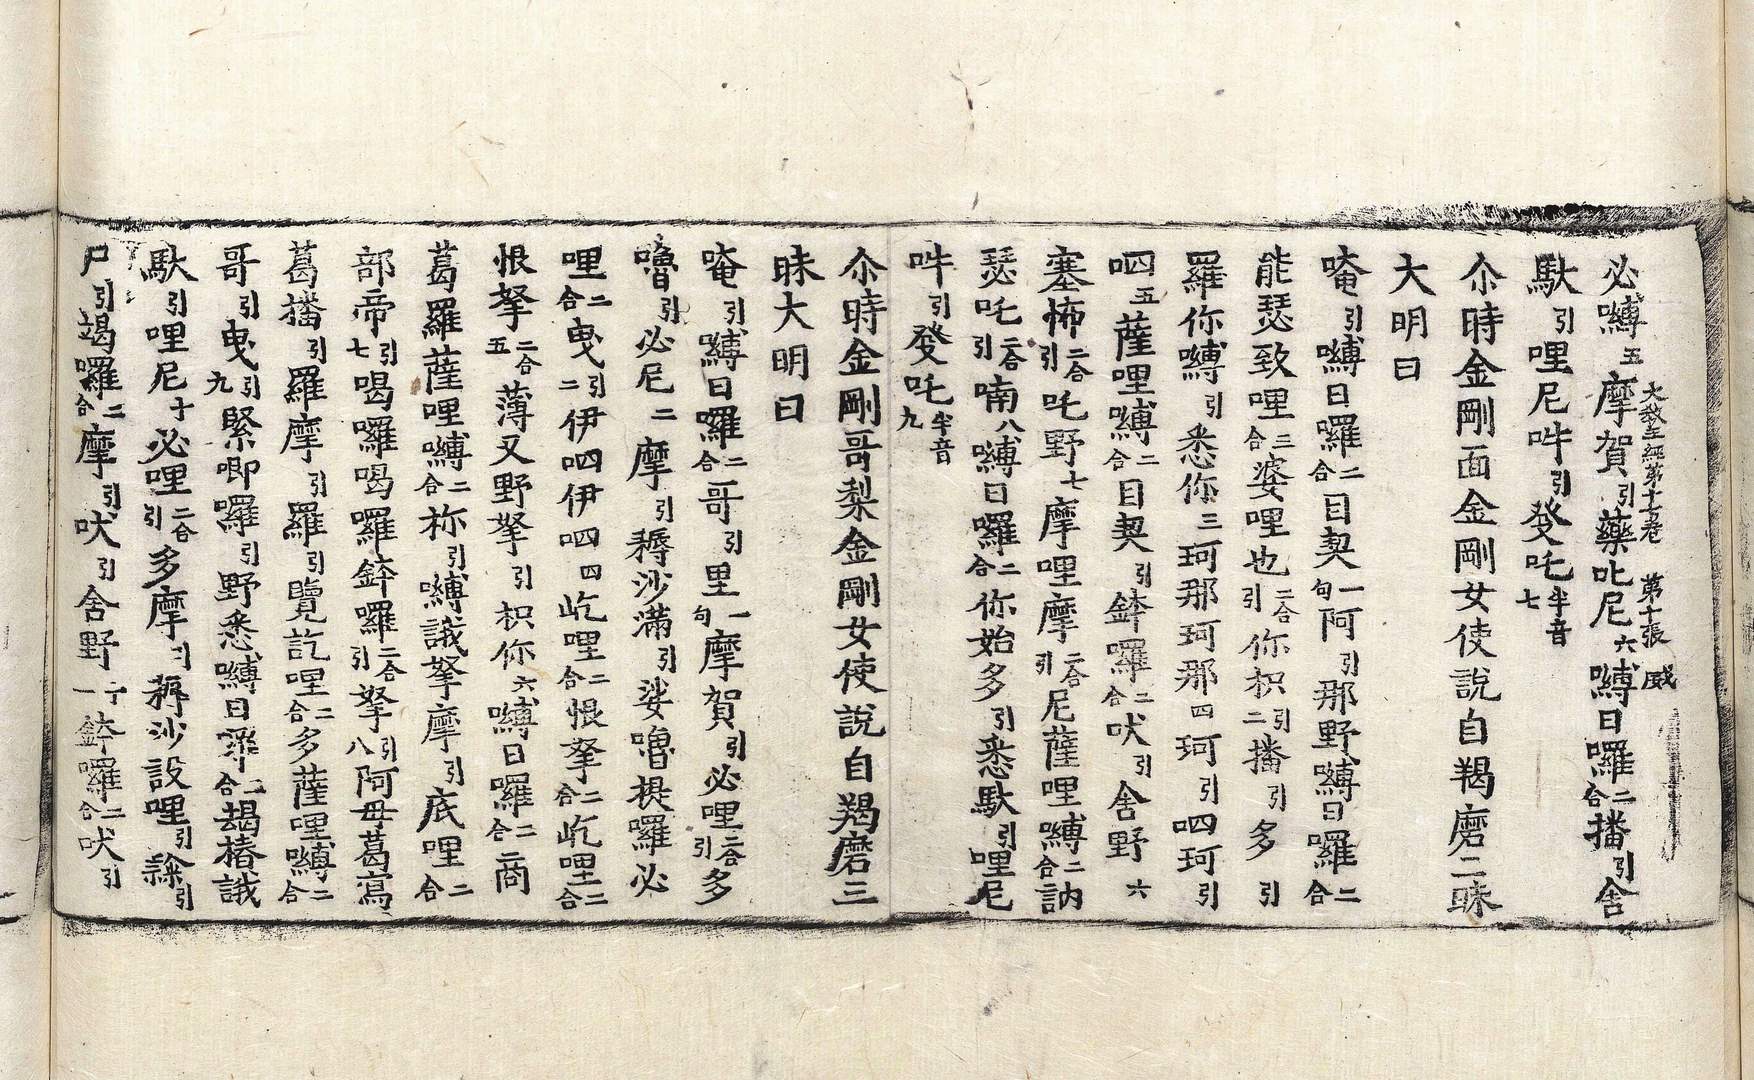 大教王經第十七卷 第十張 威
必嚩五摩賀引藥叱尼六嚩日囉二合播引舍
馱引哩尼吽引發吒半音七
尒時金剛面金剛女使說自羯磨三昧
大明曰
唵引嚩日囉二合目契一句阿引那野嚩日囉二合
能瑟致哩三合婆哩也二合引你枳引二播引多引
羅你嚩引悉你三珂那珂那四珂引呬珂引
呬五薩哩嚩二合目契引鉢囉二合吠引舍野六
塞怖二合引吒野七摩哩摩二合引尼薩哩嚩二合訥
瑟吒二合引喃八嚩日囉二合你始多引悉馱引哩尼
吽引發吒半音九
尒時金剛哥梨金剛女使說自羯磨三
昧大明曰
唵引嚩日囉二合哥引里一句摩賀引必哩二合引多
嚕引必尼二摩引耨沙滿引娑嚕提囉必
哩二合曳引二伊呬伊呬四屹哩二合恨拏二合屹哩二合
恨拏二合五薄叉野拏引枳你六嚩日囉二合商
葛羅薩哩嚩二合祢引嚩誐拏摩引底哩二合
部帝引七喝囉喝囉鉢囉二合引拏引八阿毋葛寫
葛播引羅摩引羅引覽訖哩二合多薩哩嚩二合
哥引曳引九緊唧囉引野悉嚩日二合朅椿誐
馱引哩尼十必哩二合引多摩引耨沙設哩引𥻘引
尸引竭囉二合摩引吠引舍野十一鉢囉二合吠引